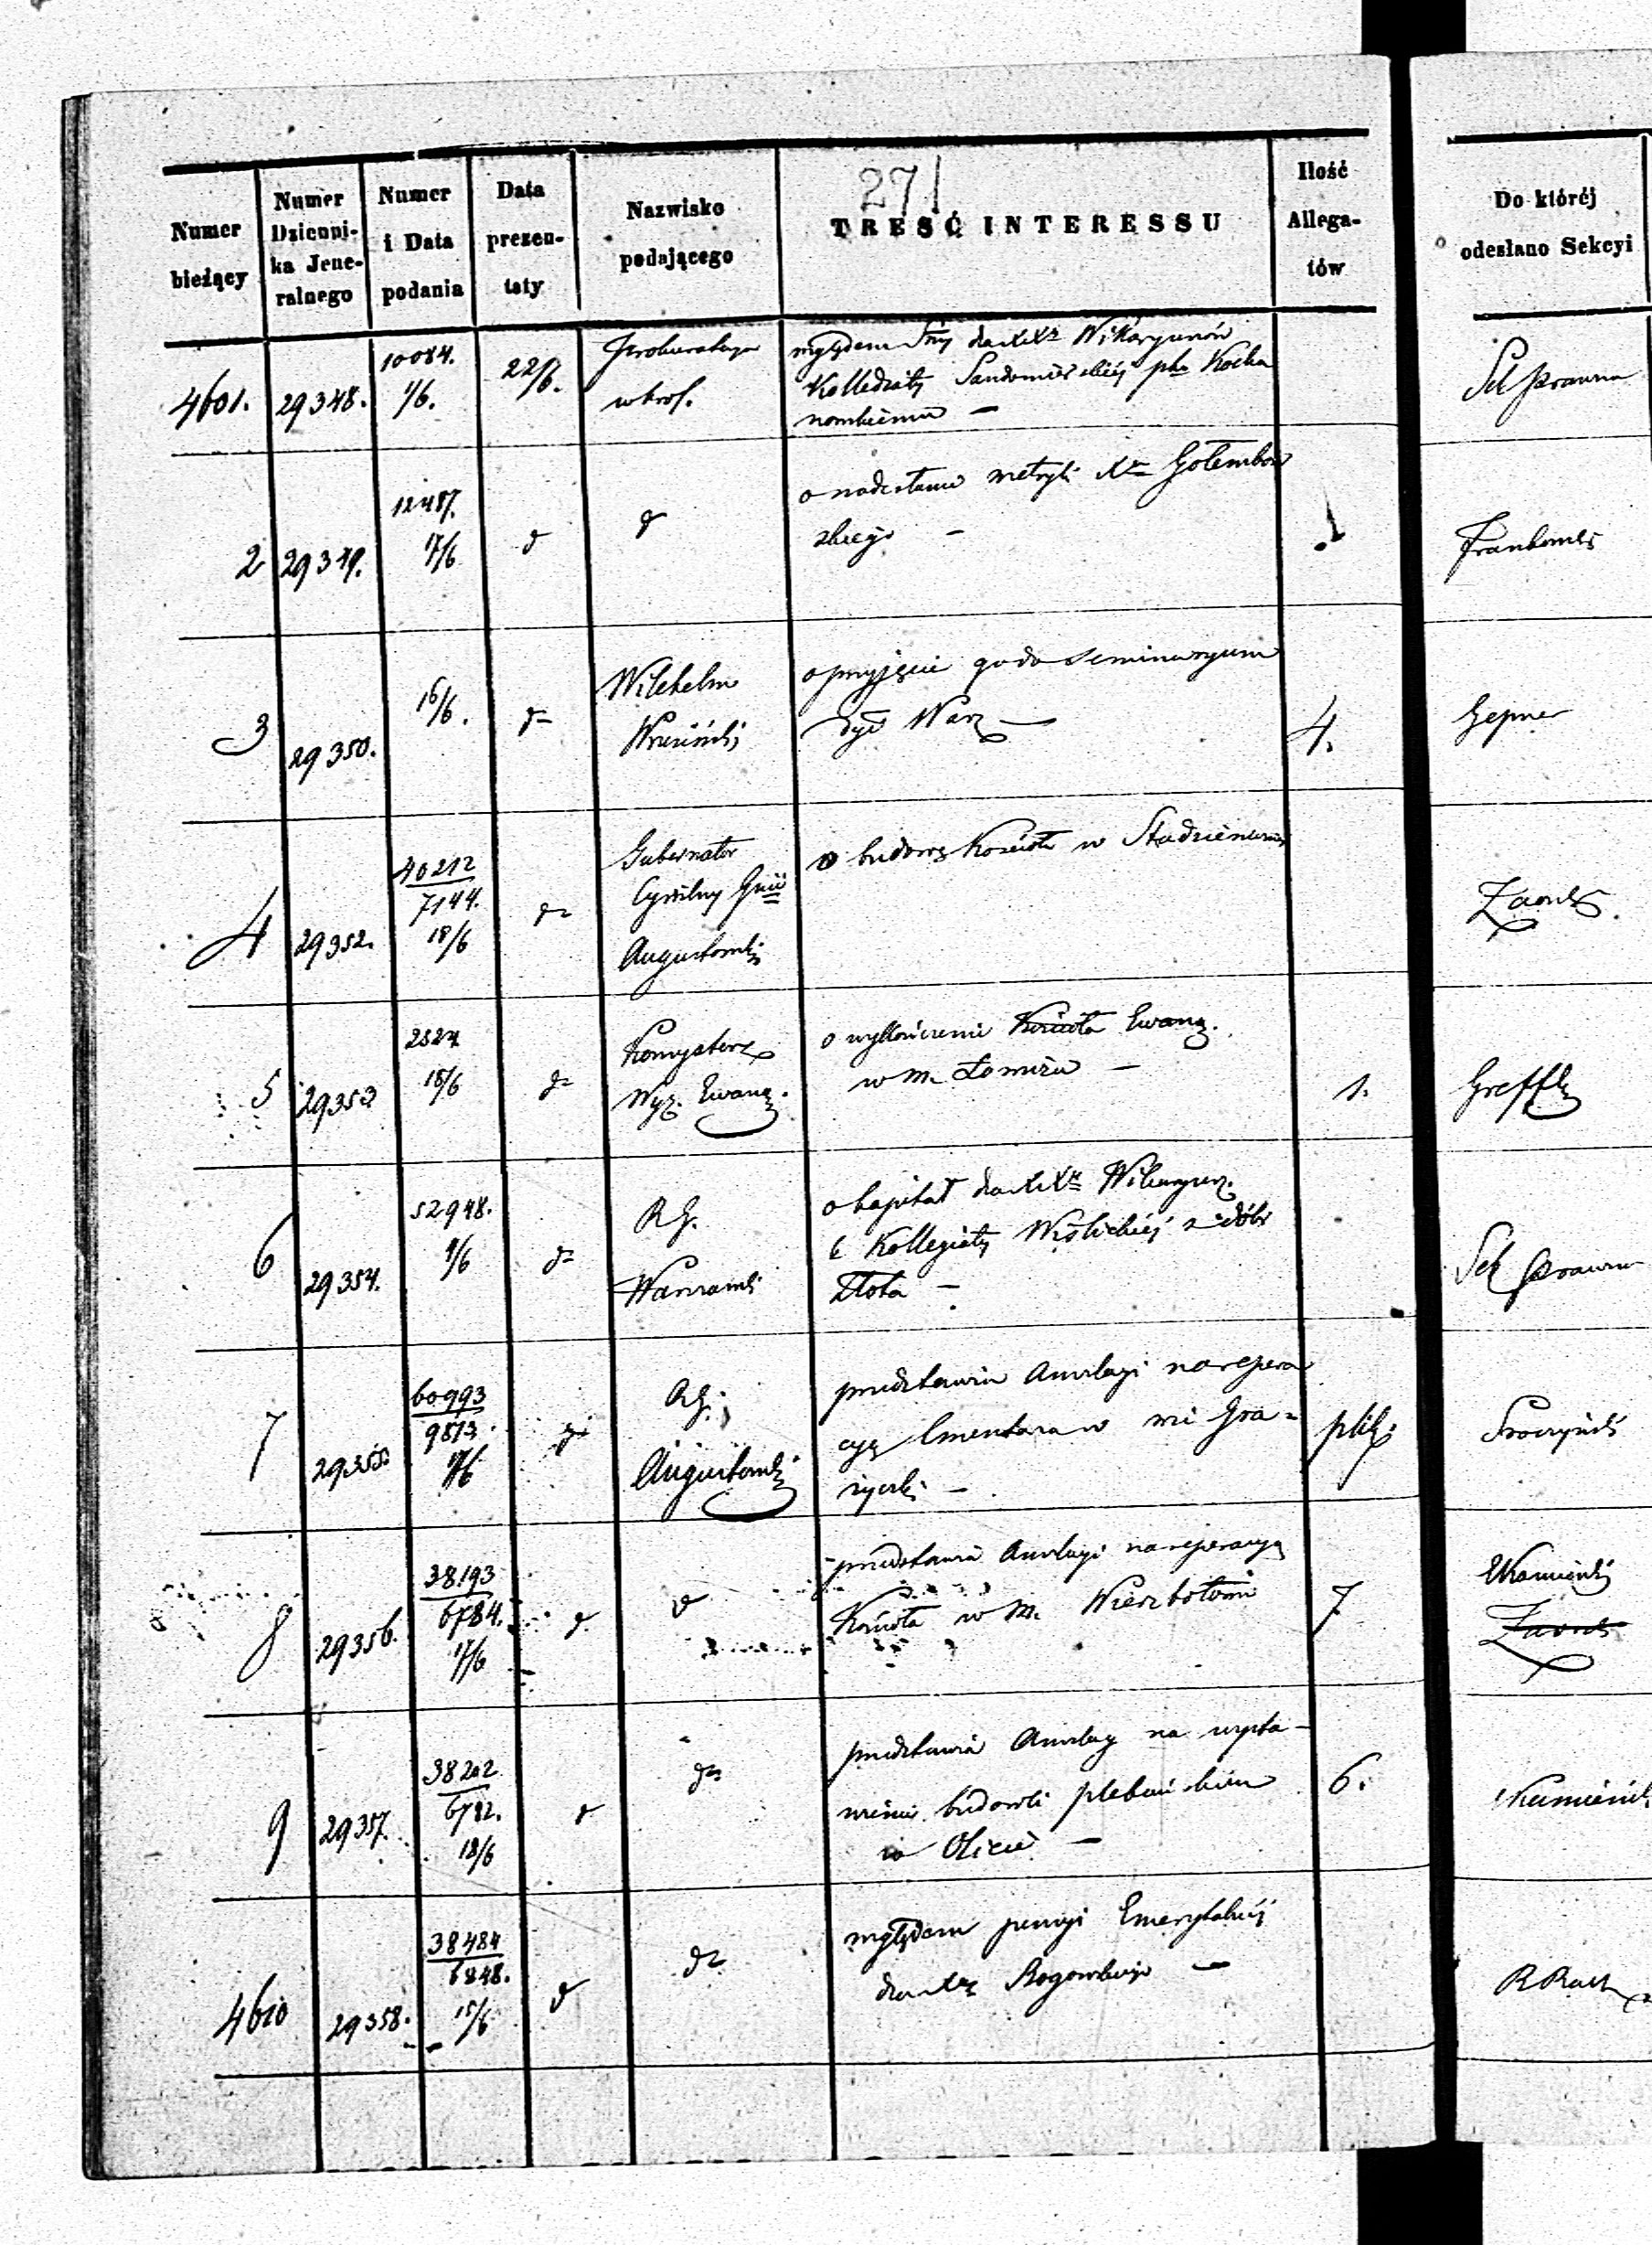 271
Numer bieżący
Numer Dziennika Jeneralnego
Numer i Data podania
Data prezentaty
Nazwisko podającego
TREŚĆ INTERESSU
Ilość Allegatów
Do któréj odesłano Sekcyi
4601. 29348. 10084. 1/6. 22/6. Prokuratorya
w Krol.
względem Sumy dla XXży Wikaryuszów
Kollegiaty Sandomierskiéj pko Kocha
nowskiemu —
Sek Prawna
2 29349. 12487. 17/6 d d
o nadesłanie metryki Xdza Gołembow
skiego —
1
Frankowski
3 29350. 16/6. do
Wilchelm
o przyjęcie go do Seminaryum
Dyec Warz —
4.
Gepner
4 29352. 40212
7144. 18/6 do
Gubernator
Cywilny Gnii
Augustowskiej
o budowę Kościoła w
5 29353 2527. 18/6 do
Komysterz
Wyz. Ewang.
o wykończenie Kościoła Ewang.
w m. Łomża —
1.
6 29354. 52948. 9/6 do
RG.
Warszawski
o kapitał dla XXży Wikaryusz.
Kollegiaty Wiślickiéj z dóbr
Złota —
Sek Prawna
7 29355. 60993
9873. 17/6 do
RG.
Augustowski
przedstawia Anszlagi na repera
cyę Cmentarza w
plik.
8 29356. 38193
6784. 17/6 d d
przedstawia Anszlagi na reperacyą
Kościoła w m. Wierzbołowie
7
Kamieński
9 29357. 38202
6782. 18/6 d do
przedstawia Anszlag na wysta-
wienie budowli plebańskiéj
w Olicie —
6.
Kamieński
4610 29358. 38484
6848. 15/6 d do
względem pensyi Emerytalnéj
dla Xdza Rogowskiego —